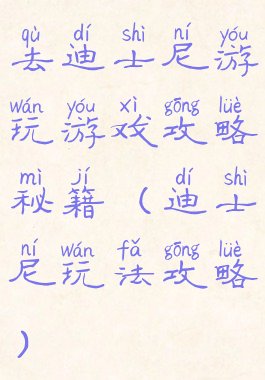 qù dí shì ní yóu
去迪士尼游
wán yóu xì gōng lüè
玩游戏攻略
mì jí dí shì
秘籍（迪士
ní wán fǎ gōng lüè
尼玩法攻略
）